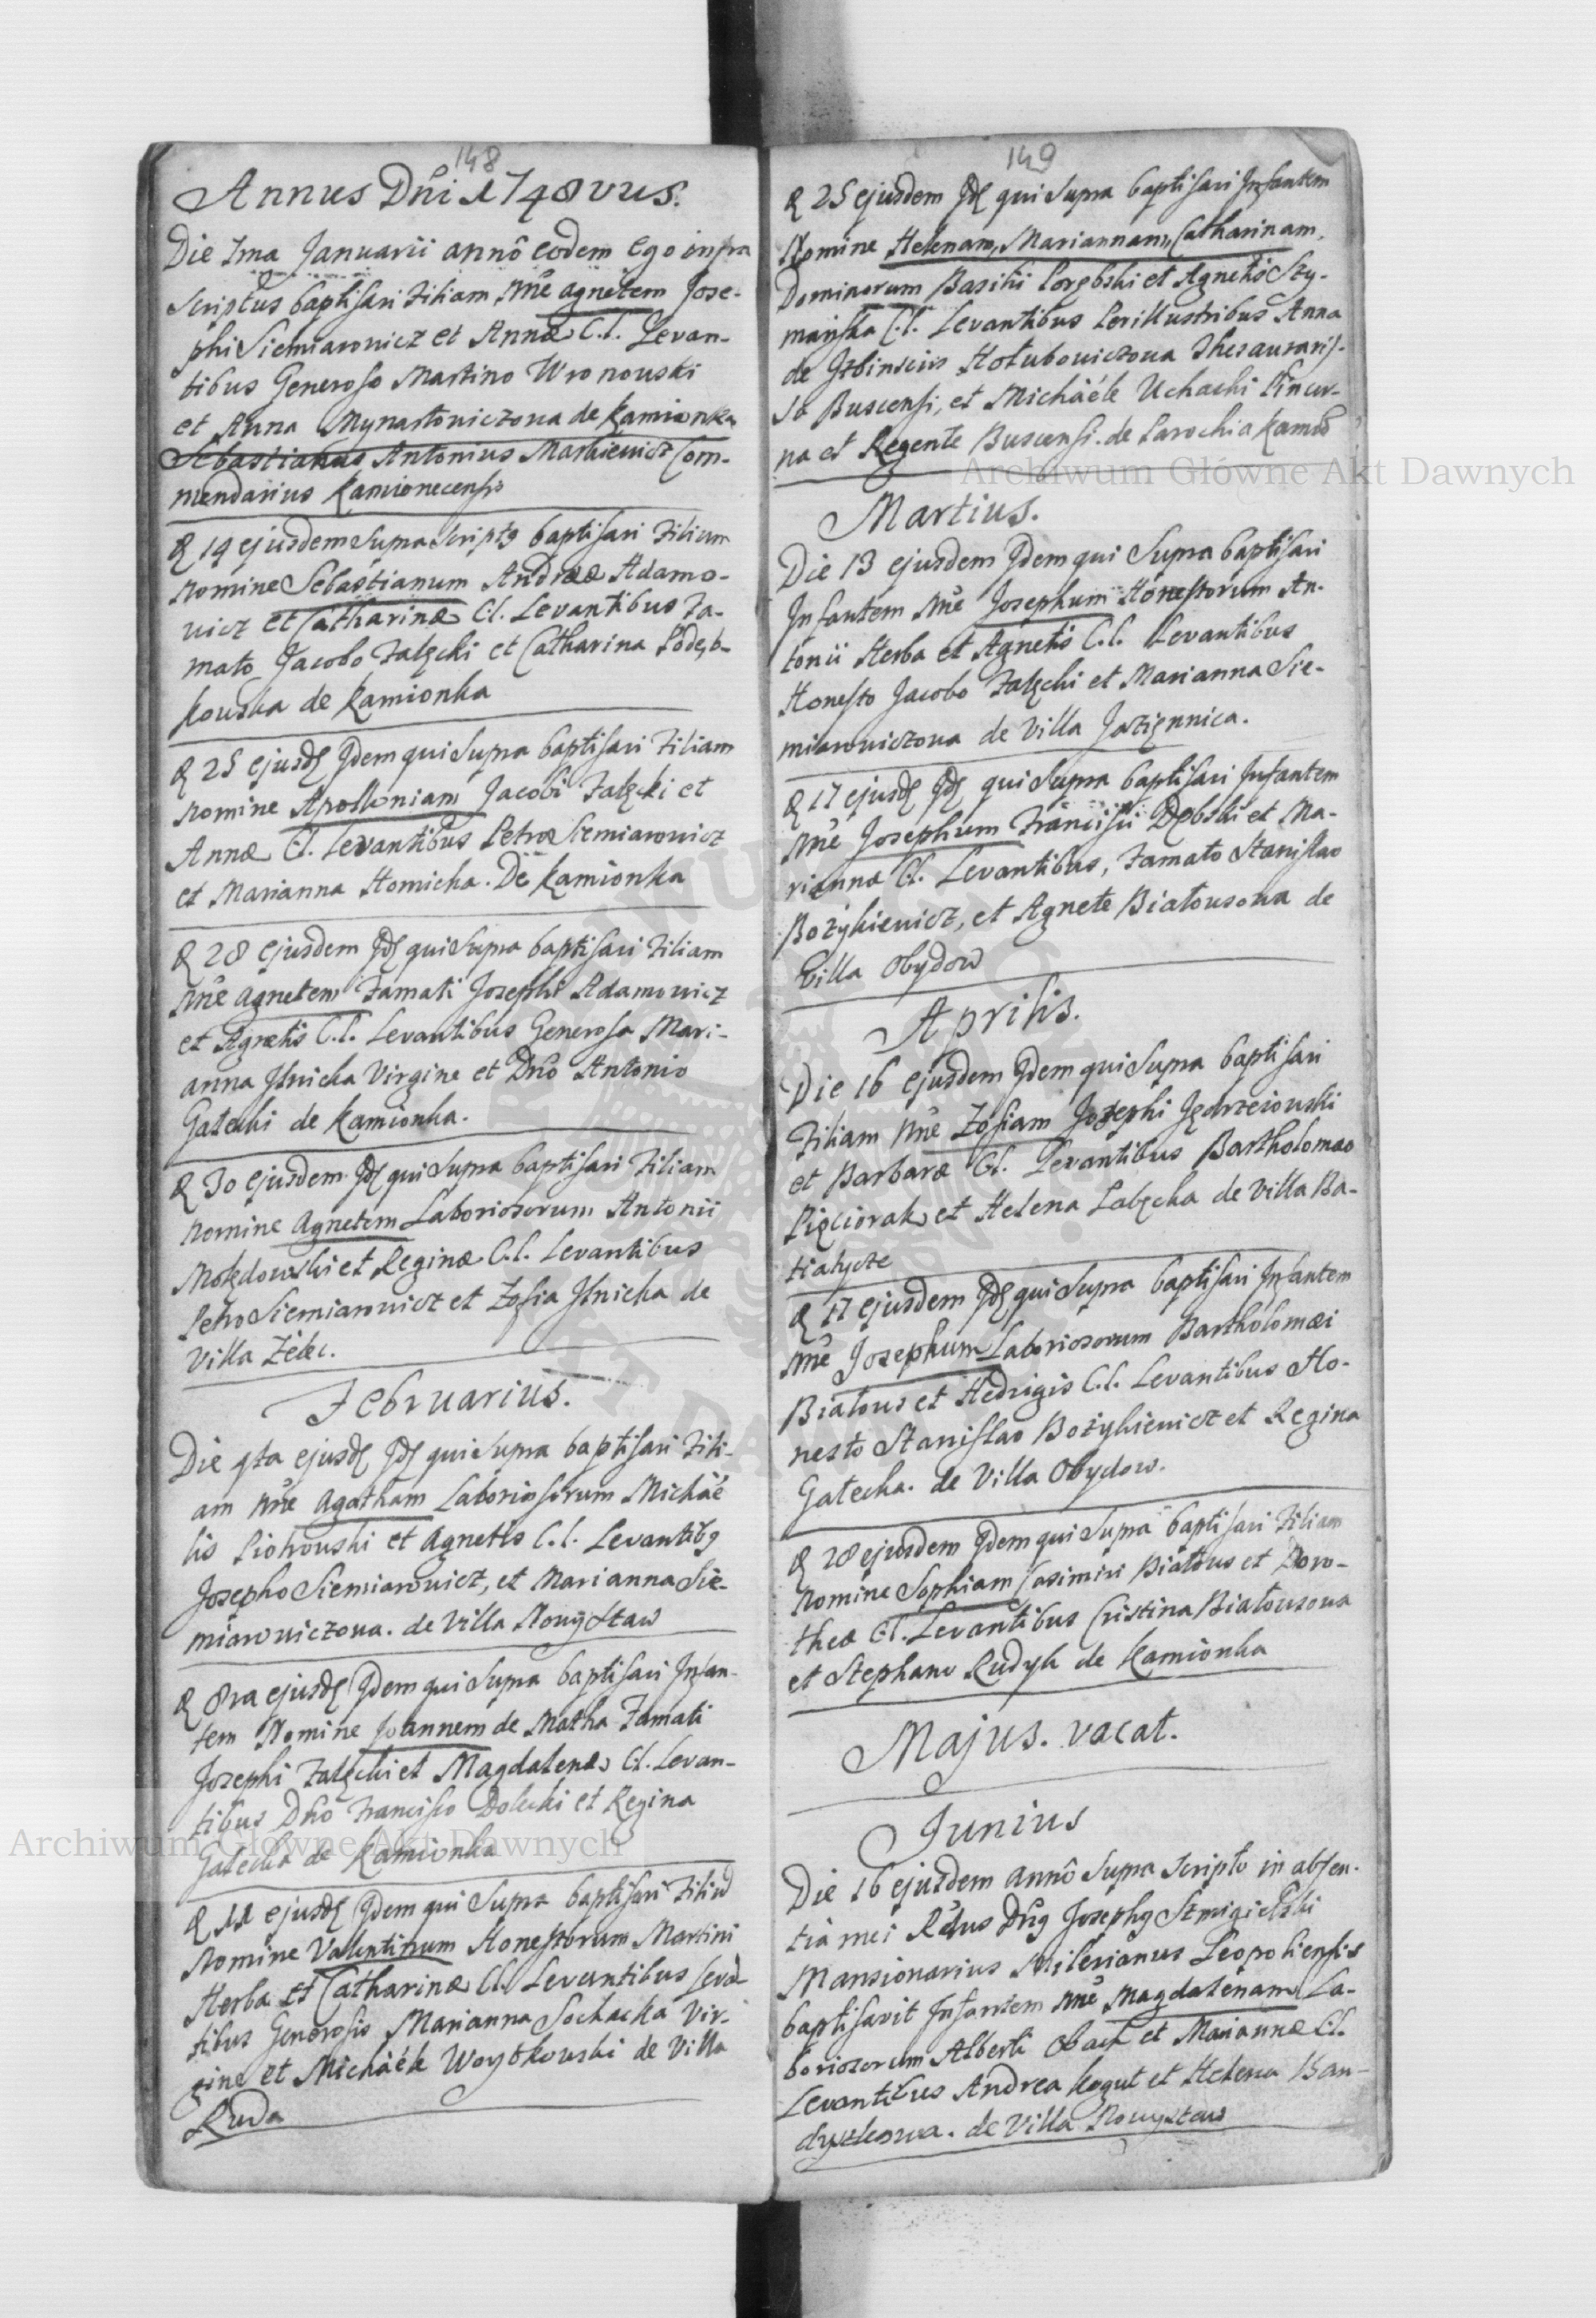 148
Annus Dñi 1748vus.
Die 1ma Januarii annô eodem Ego infra
Scriptus baptisavi Filiam Nñe Agnetem Jose-
phi Siemiarowicz et Annæ C.l. Levan-
tibus Generoso Martino Wronouski
et Anna Mynartowiczowa de Kamionka
Sebastianus Antonius Markiewicz Com-
mendarius Kamionecensis
14 ejusdem Supra Scriptg baptisavi Filium
Nomine Sebastianum Andreæ Adamo-
vicz et Catharinæ C.l. Levantibus Fa-
mato Jacobo Falęcki et Catharina
kouska de Kamionka
25 ejusd Jdem qui Supra baptisavi Filiam
Nomine Apolloniam Jacobi Falęcki et
Annæ C.l. Levantibus Petro Siemiarowicz
et Marianna Homicka. De Kamionka
28 ejusdem Jd qui Supra baptisavi Filiam
Nñe Agnetem Famati Josephi Adamowicz
et Agnetis C.l. Levantibus Generosa Mari-
anna Jlnicka Virgine et Dñô Antonio
Gałecki de Kamionka.
30 ejusdem Jd qui Supra baptisavi Filiam
Nomine Agnetem Laboriosorum Antonii
et Reginæ C.l. Levantibus
Petro Siemiarowicz et Zofia Jlnicka de
Villa Żelec.
Februarius.
Die 4ta ejusd Jd qui Supra baptisavi Fili-
am Nñe Agatham Laboriosorum Michaë
lis Piotrouski et Agnetis C.l. Levantibg
Josepho Siemiarowicz, et Marianna Sie-
miarowiczowa. de Villa Nouyskaw
8va ejusd Jdem qui Supra baptisavi Infan-
tem Nomine Joannem de Matha Famati
Josephi Falęcki et Magdalenæ C.l. Levan-
tibus Dñô Francisco Dolecki et Regina
Gałecka de Kamionka
11 ejusd Jdem qui Supra baptisavi Filiũ
Nomine Valentinum Honestorum Martini
Herba et Catharinæ C.l. Levantibus Levã
tibus Generosis Marianna Sochacka Vir-
gine et Michaéle Woytkouski de Villa
Ruda
149
25 ejusdem Jd qui Supra baptisavi Infantem
Nomine Helenam, Mariannam, Catharinam,
Dominorum Basilii Porębski et Agnetis Szy-
mańska C.l. Levantibus Perillustribus Anna
de Hołubowiczowa Thesauraris-
sa Buscensi, et Michaéle Uchacki Pincer-
na et Regente Buscensi. de Parochia Kamiõ
Martius.
Die 13 ejusdem Jdem qui Supra baptisavi
Infantem Nñe Josephum Honestorum An-
tonii Herba et Agnetis C.l. Levantibus
Honesto Jacobo Falęcki et Marianna Sie-
miarowiczowa de Villa Jazięnnica.
17 ejusd Jd qui Supra baptisavi Infantem
Nñe Josephum Francisci Dębski et Ma-
riannæ C.l. Levantibus, Famato Stanislao
Bożykiewicz, et Agnete Białousowa de
Villa Obydow
Aprilis.
Die 16 ejusdem Jdem qui Supra baptisavi
Filiam Nñe Zofiam Josephi Jędrzeiouski
et Barbaræ C.l. Levantibus Bartholomæo
Pięciorak et Helena Łabęcka de Villa Ba-
tiatycze
17 ejusdem Jd qui Supra baptisavi Infantem
Nñe Josephum Laboriosorum Bartholomæi
Białous et Hedvigis C.l. Levantibus Ho-
nesto Stanislao Bożykiewicz et Regina
Gałecka. de Villa Obydow.
28 ejusdem Jdem qui Supra baptisavi Filiam
Nomine Sophiam Casimiri Białous et Doro-
theæ C.l. Levantibus Cristina Białousowa
et Stephano Rudyk de Kamionka
Majus. vacat.
Junius
Die 16 ejusdem annô Supra Scripto in absen-
tia mei Rdus Dñg Josephg Szmigielski
Mansionarius Milerianus Leopoliensis
baptisavit Infantem Nñe Magdalenam La-
boriosorum Alberti Obach et Mariannæ C.l.
Levantibus Andrea Kogut et Helena Ban-
dyszkowa. de Villa Nouystaw
Archiwum Główne Akt Dawnych
Archiwum Główne Akt Dawnych